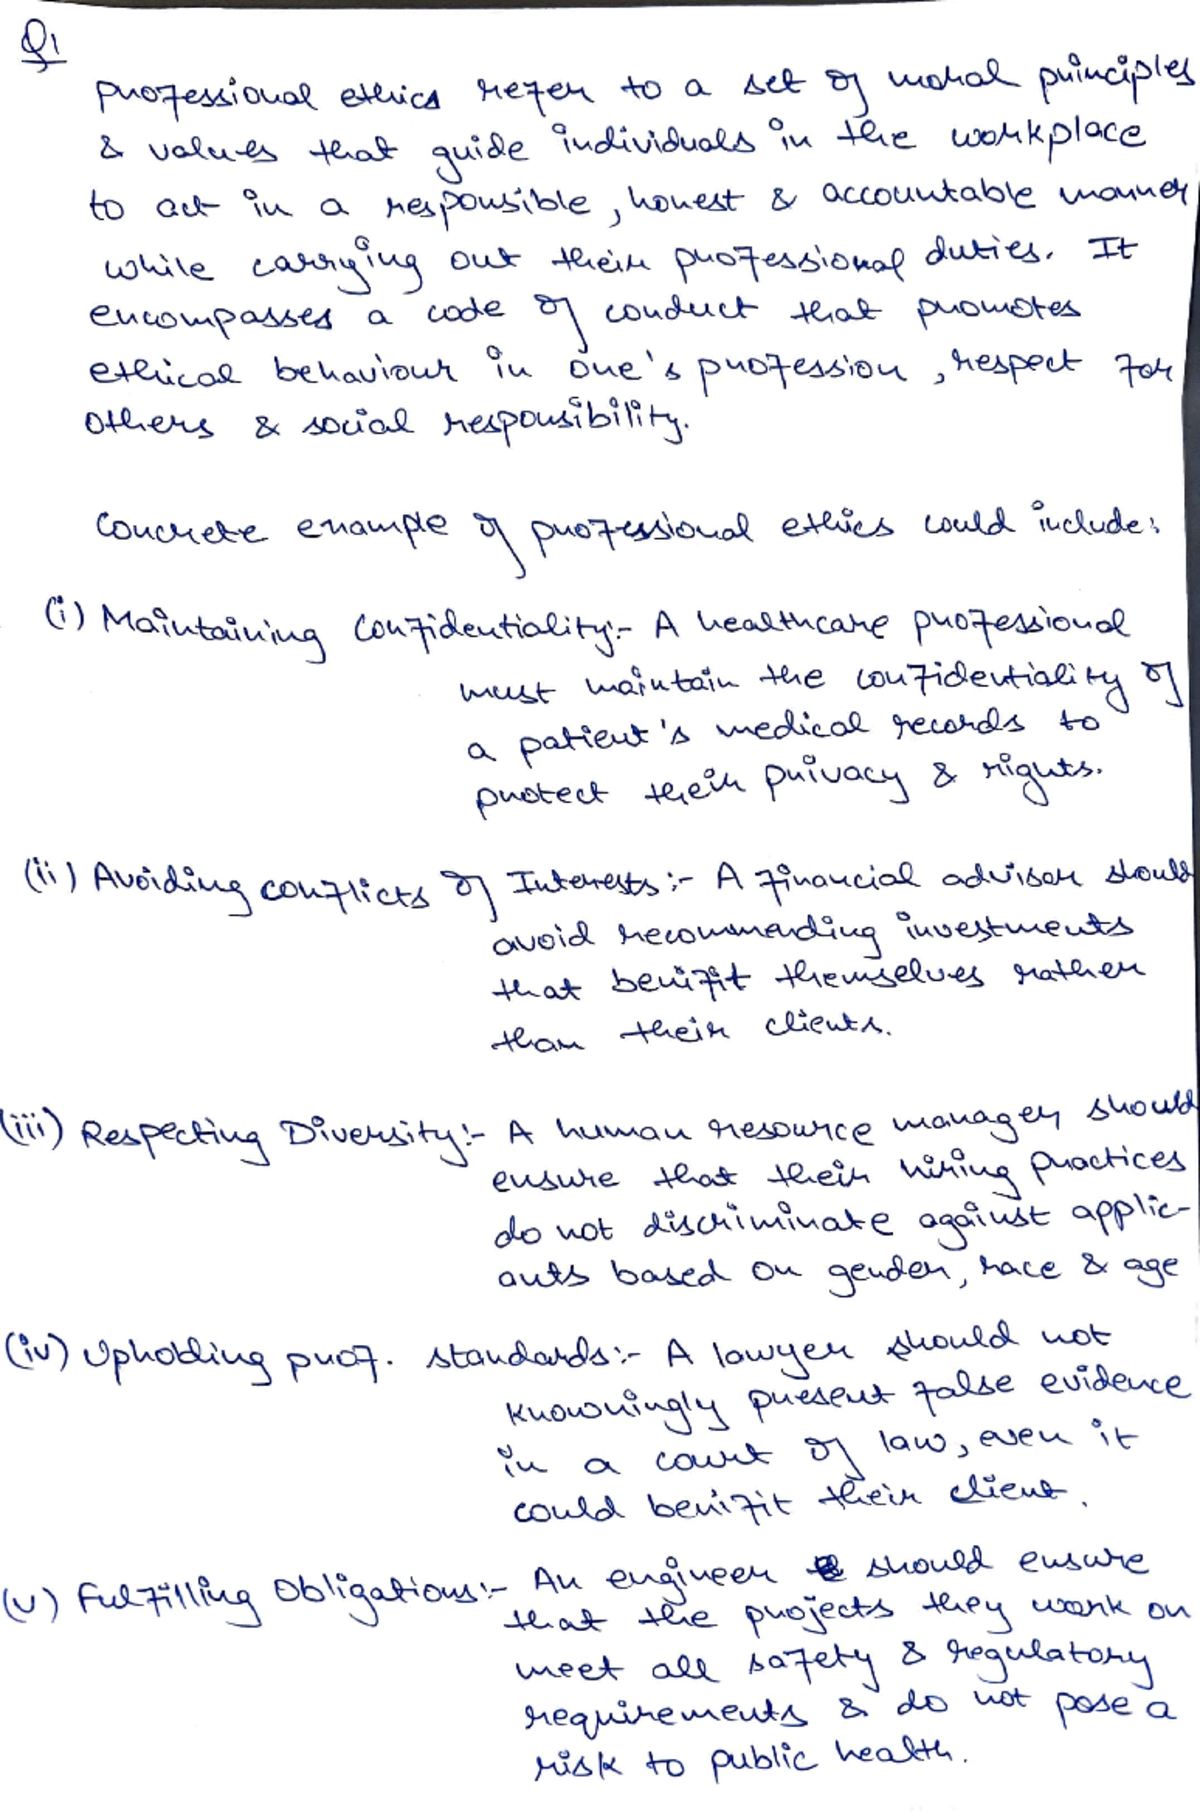 Q1
professional ethics refer to a set of moral principles
& values that guide individuals in the workplace
to act in a responsible, honest & accountable manner
while carrying out their professional duties. It
encompasses a code of conduct that promotes
ethical behaviour in one's profession, respect for
others & social responsibility.
Concrete example of professional ethics could include:
(i) Maintaining Confidentiality:- A healthcare professional
must maintain the confidentiality of
a patient's medical records to
protect their privacy & rights.
(ii) Avoiding conflicts of Interests:- A financial advisor should
avoid recommending investments
that benifit themselves rather
than their clients.
(iii) Respecting Diversity:- A human resource manager should
ensure that their hiring practices
do not discriminate against applic-
ants based on gender, race & age
(iv) Upholding prof. standards:- A lawyer should not
knowningly present false evidence
in a court of law, even it
could benifit their client.
(v) Fulfilling Obligations:- An engineer should ensure
that the projects they work on
meet all safety & regulatory
requirements & do not pose a
risk to public health.